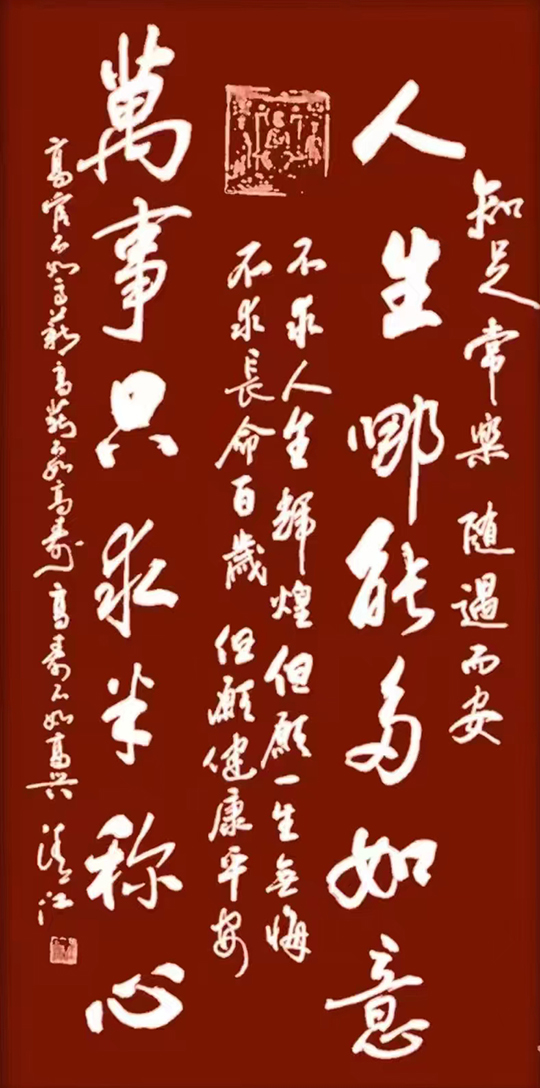 知足常樂 随遇而安
人生哪能多如意
不求人生輝煌 但願一生無悔
不求長命百歲 但願健康平安
萬事只求半称心
高官不如高薪 高薪不如高壽 高壽不如高兴
清江